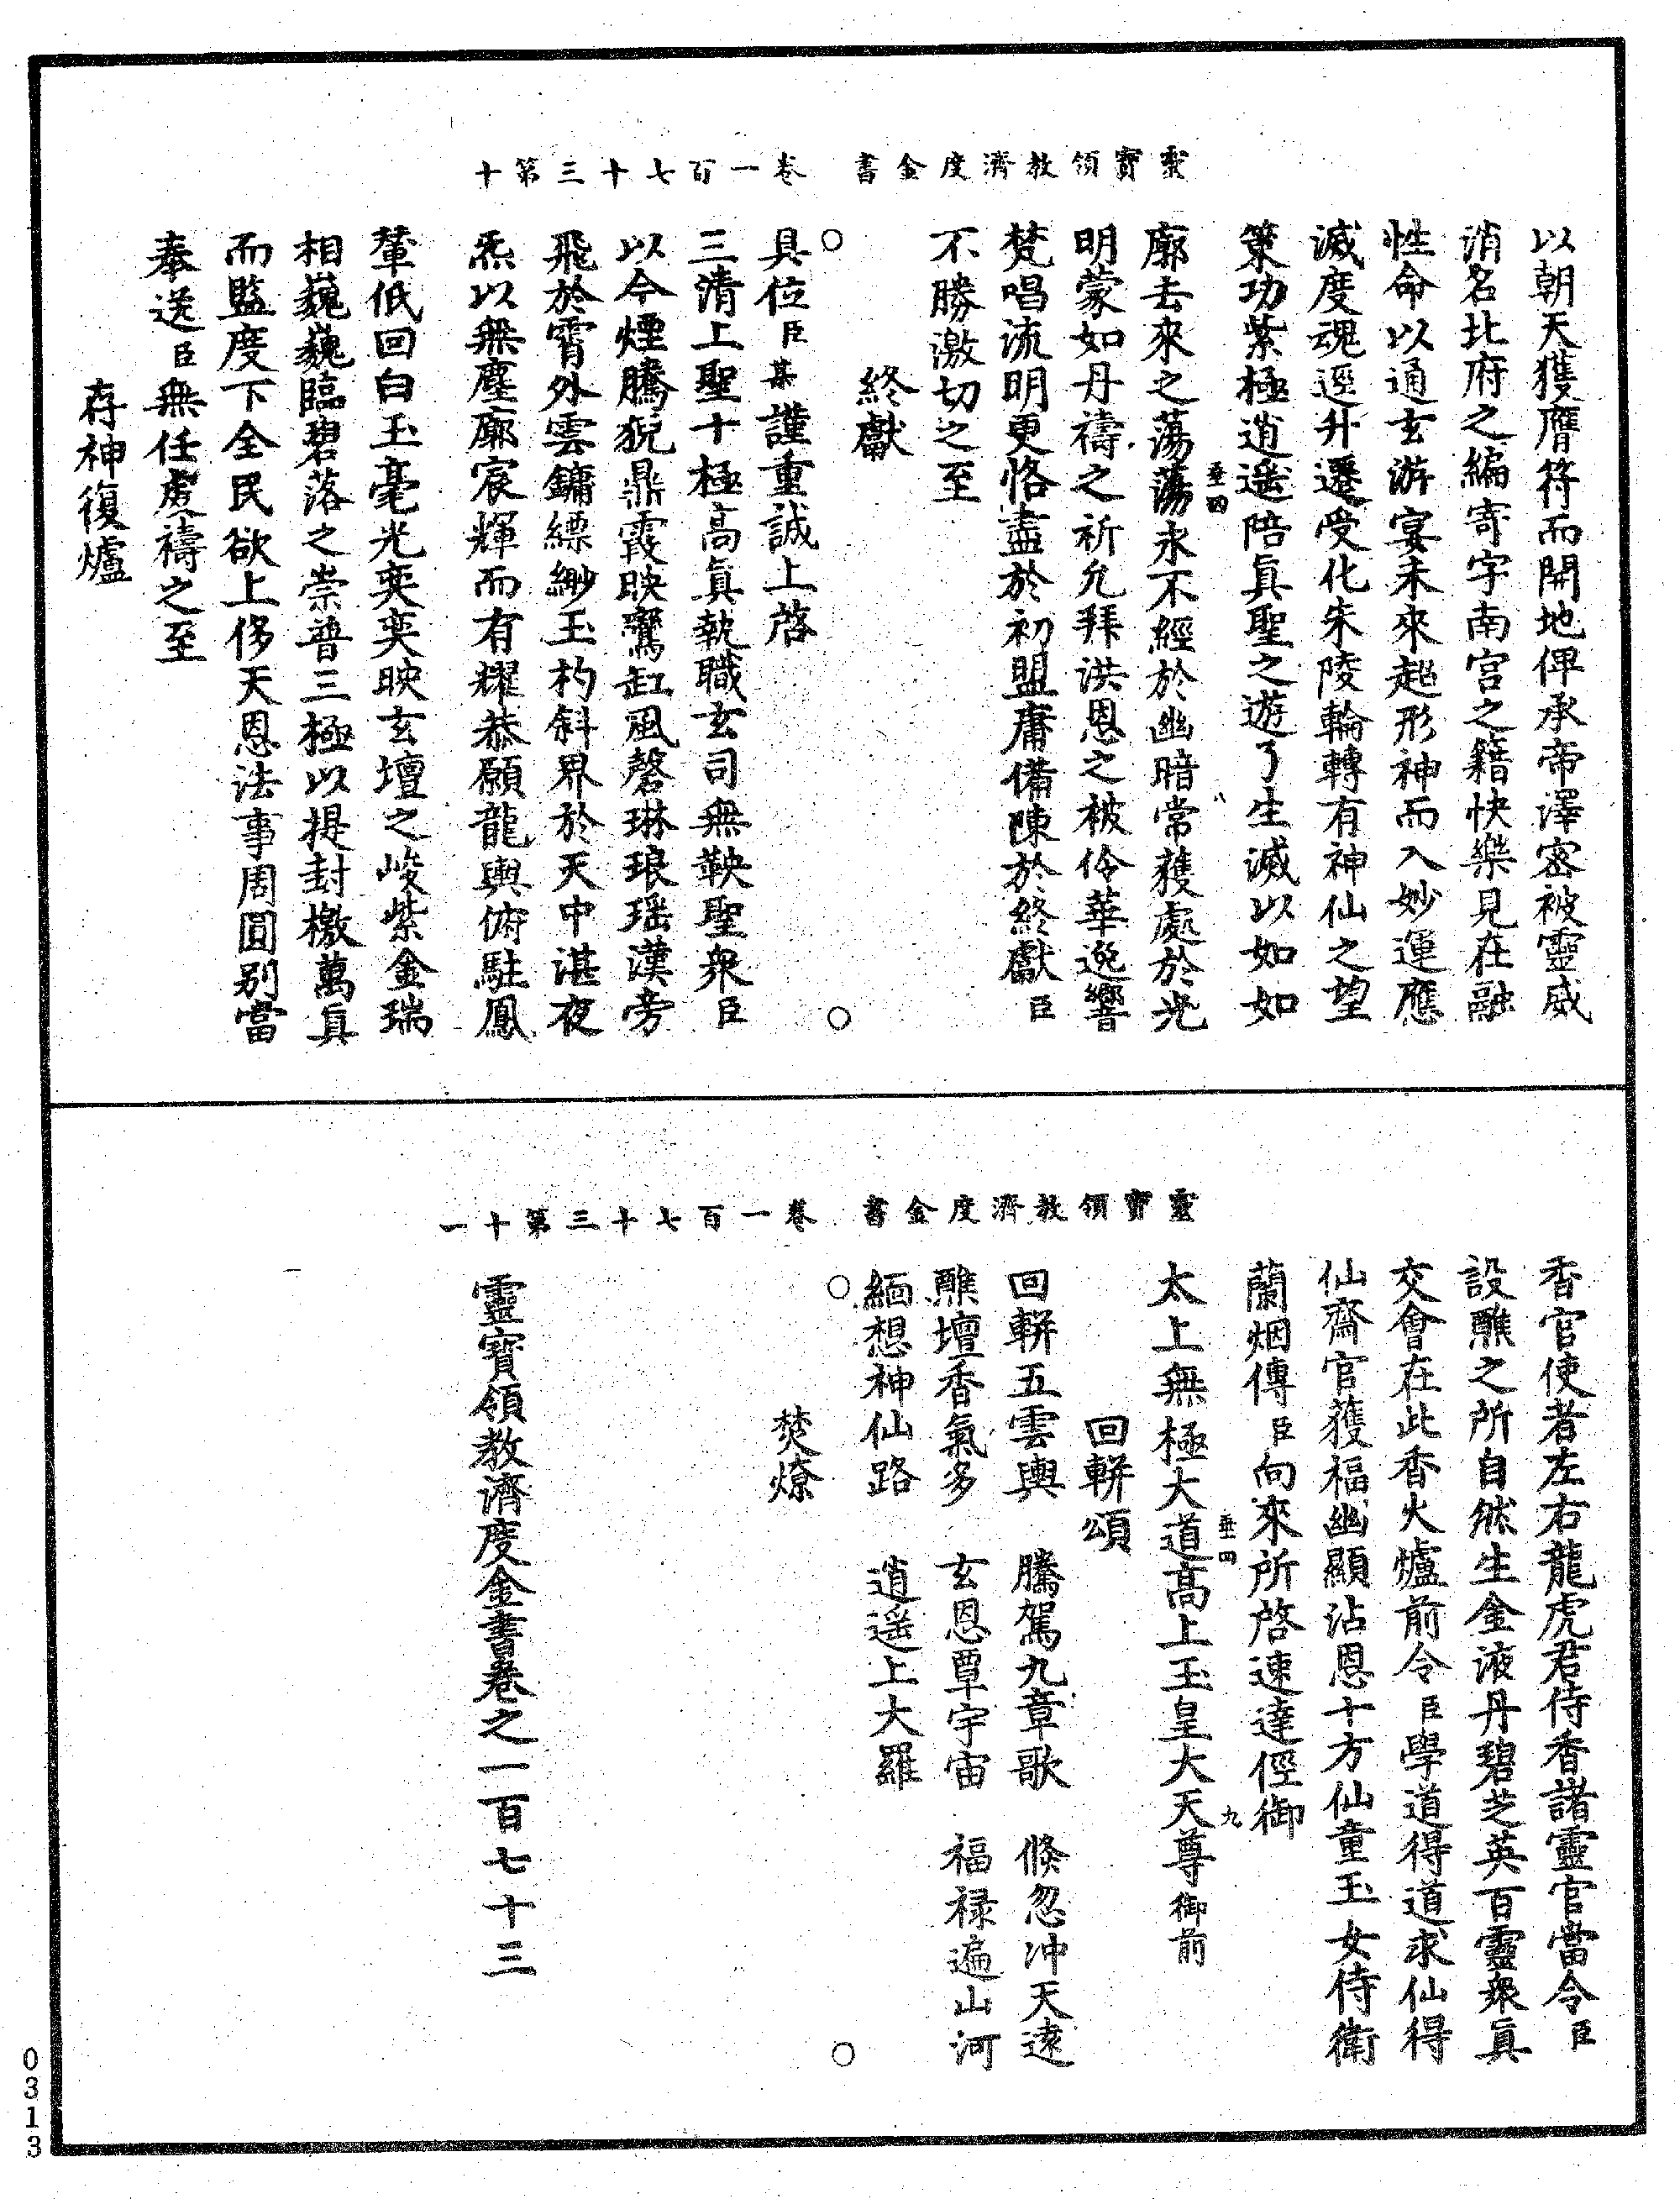 靈寶領教濟度金書　卷一百七十三第十
以朝天獲膺符而開地俾承帝澤密被靈威
消名北府之編寄字南宫之籍快樂見在融
性命以通玄游宴未來超形神而入妙運應
滅度魂逕升遷受化朱陵輪轉有神仙之望
策功紫極逍遥陪眞聖之遊了生滅以如如
垂四
八
廓去來之蕩蕩永不經於幽暗常獲處於光
明蒙如丹禱之祈允拜洪恩之被伶華逸響
梵唱流明更恪盡於初盟庸備陳於終獻臣
不勝激切之至
終獻
具位臣某謹重誠上啓
三清上聖十極高眞執職玄司無鞅聖衆臣
以今煙騰猊鼎霞映鸞缸風磬琳琅瑶漢旁
飛於霄外雲鏞縹緲玉杓斜界於天中湛夜
炁以無塵廓宸輝而有耀恭願龍輿俯駐鳳
輦低回白玉毫光奕奕映玄壇之峻紫金瑞
相巍巍臨碧落之崇普三極以提封檄萬眞
而監度下全民欲上侈天恩法事周圓別當
奉送臣無任虔禱之至
存神復爐
靈寶領教濟度金書　卷一百七十三第十一
香官使者左右龍虎君侍香諸靈官當令臣
設醮之所自然生金液丹碧芝英百靈衆眞
交會在此香火爐前令臣學道得道求仙得
仙齋官獲福幽顯沾恩十方仙童玉女侍衛
蘭烟傳臣向來所啓速達徑御
垂四
九
太上無極大道高上玉皇大天尊御前
回軿頌
回軿五雲輿　騰駕九章歌　倏忽冲天逺
醮壇香氣多　玄恩覃宇宙　福禄遍山河
緬想神仙路　逍遥上大羅
焚燎
靈寶領教濟度金書卷之一百七十三
0313